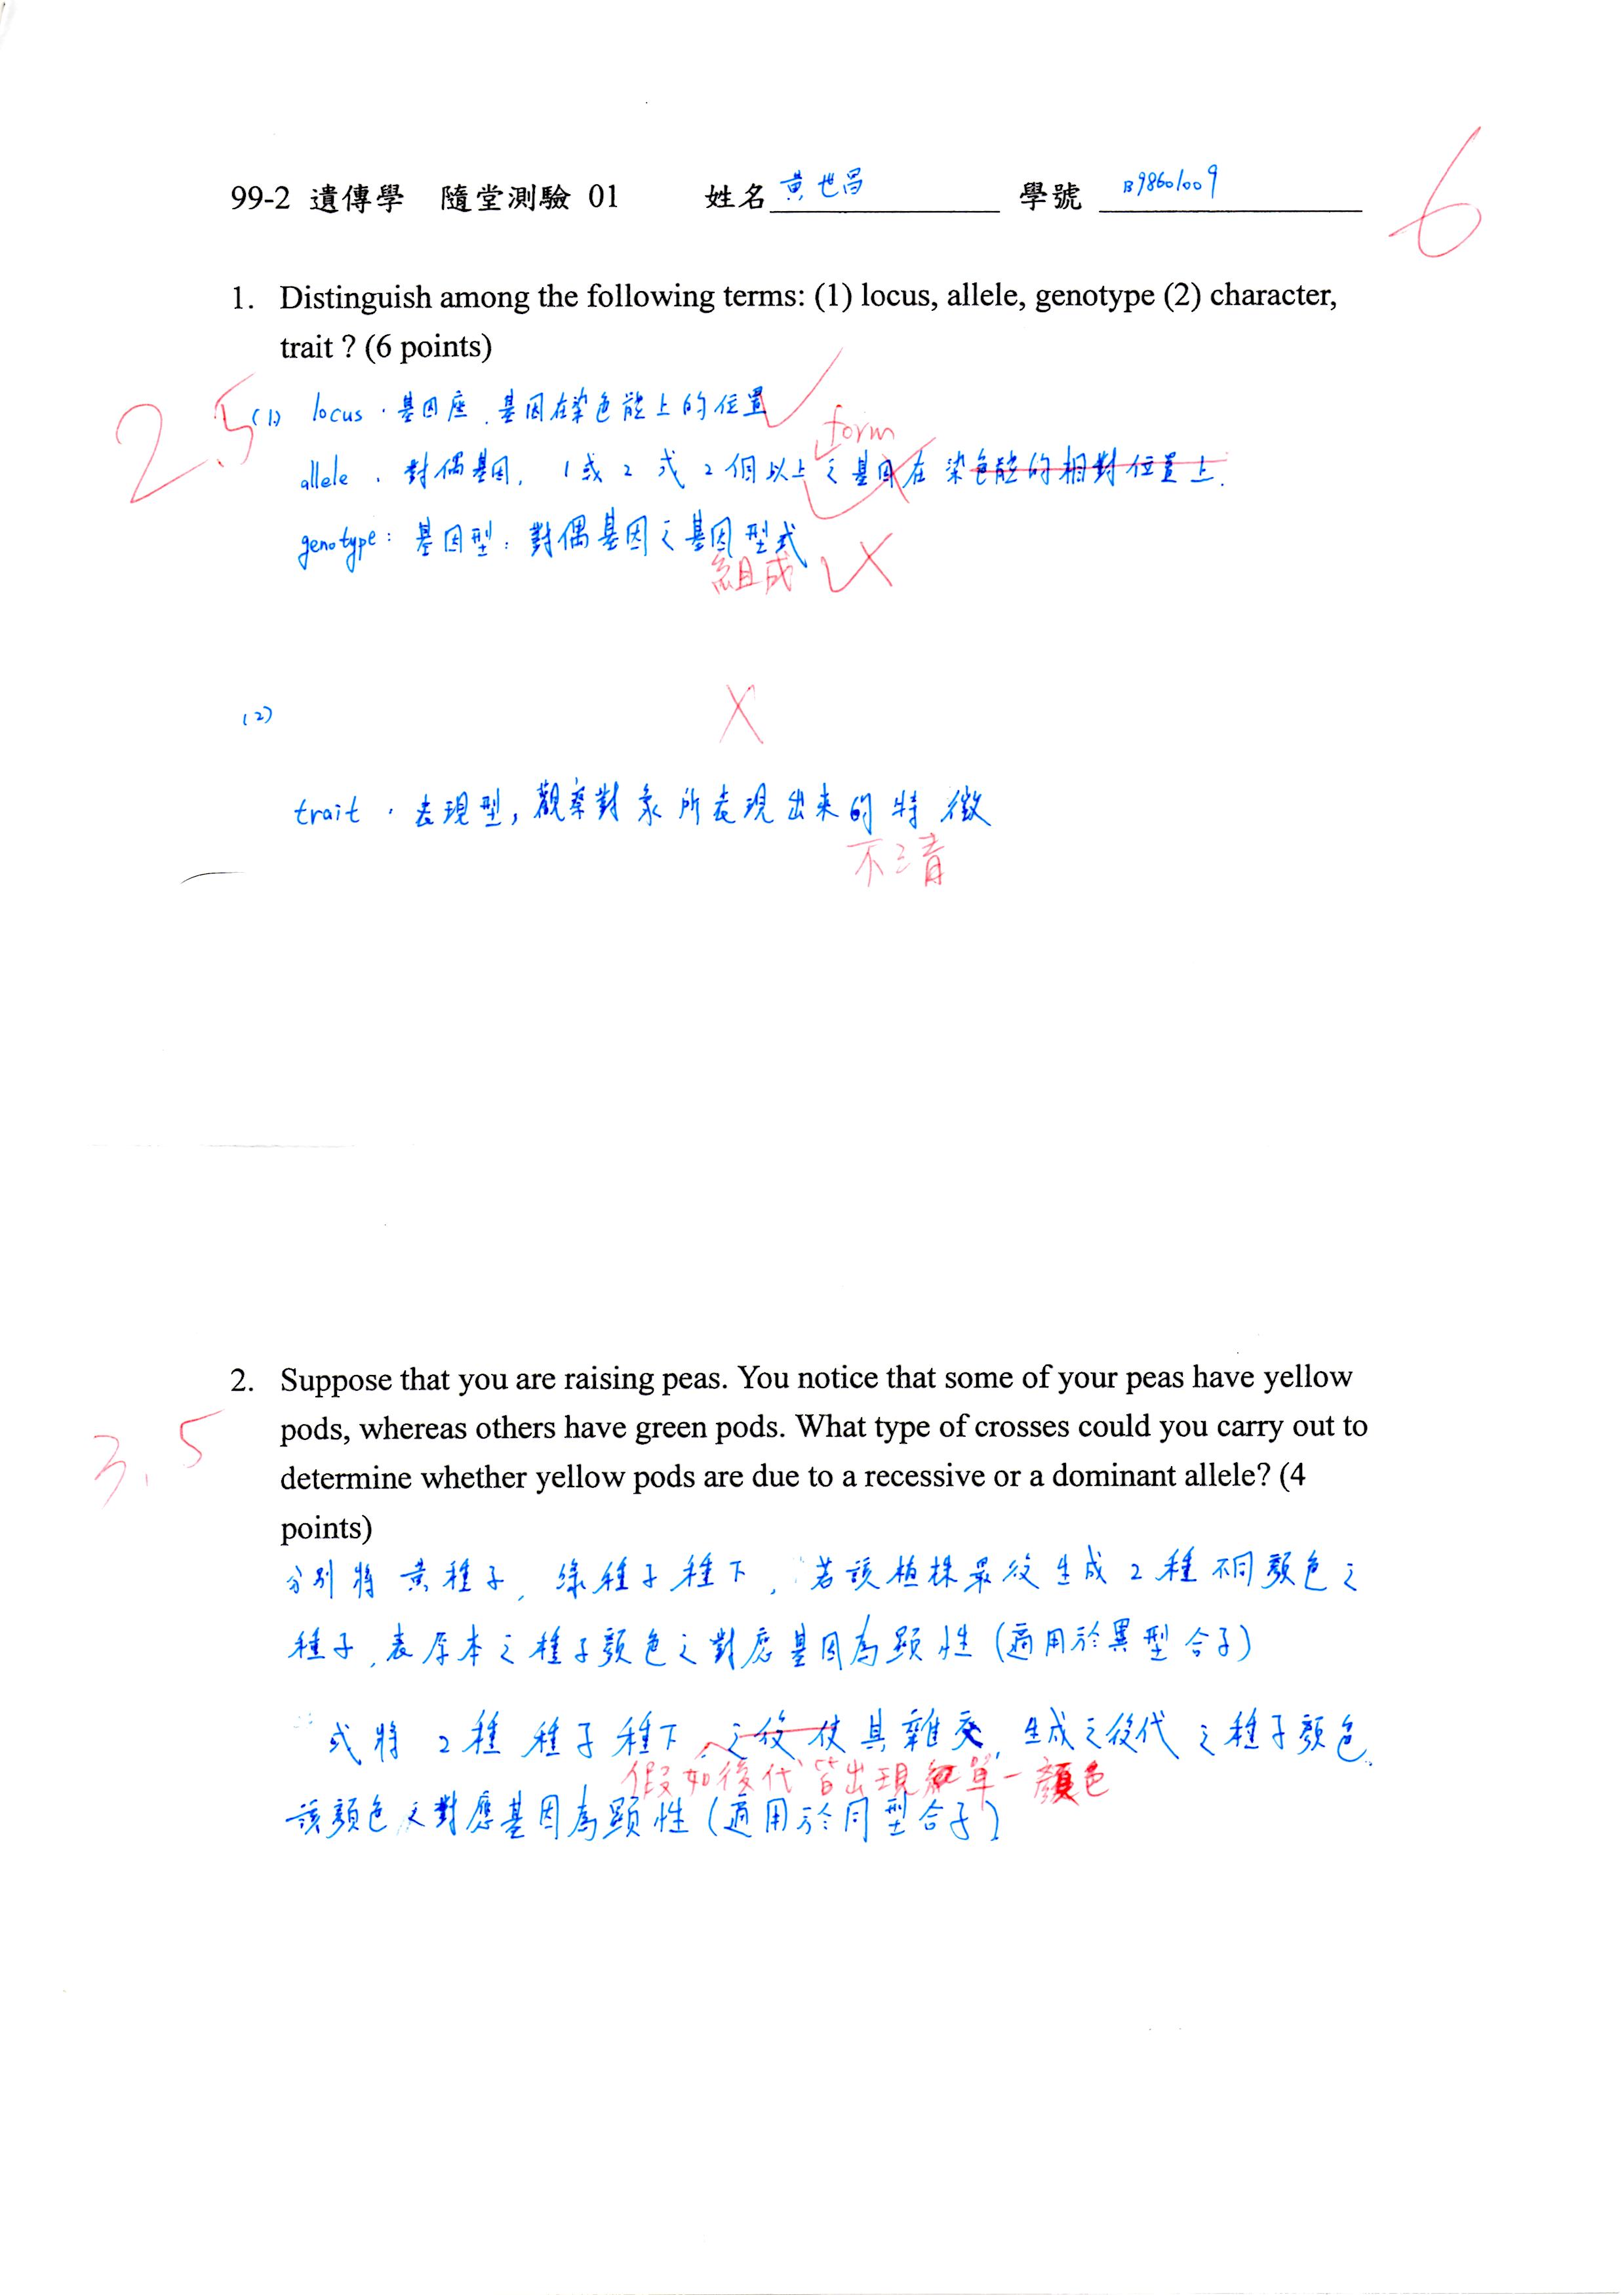 99-2 遺傳學 隨堂測驗 01 姓名 黃世昌 學號 B98601009
6
1. Distinguish among the following terms: (1) locus, allele, genotype (2) character,
trait ? (6 points)
2.5
(1) locus. 基因座. 基因在染色體上的位置
form
allele. 對偶基因. 1或2 或 2個以上之基因在染色體的相對位置上.
genotype: 基因型: 對偶基因之基因型式
組成
(2)
trait. 表現型, 觀察對象所表現出來的特徵
不清
2. Suppose that you are raising peas. You notice that some of your peas have yellow
3.5
pods, whereas others have green pods. What type of crosses could you carry out to
determine whether yellow pods are due to a recessive or a dominant allele? (4
points)
分別將黃種子, 綠種子種下, 若該植株最後生成2種不同顏色之
種子, 表原本之種子顏色之對應基因為顯性 (適用於異型合子)
或將2種種子種下, 之後使其雜交, 生成之後代之種子顏色.
假如後代皆出現單一顏色
該顏色之對應基因為顯性 (適用於同型合子)